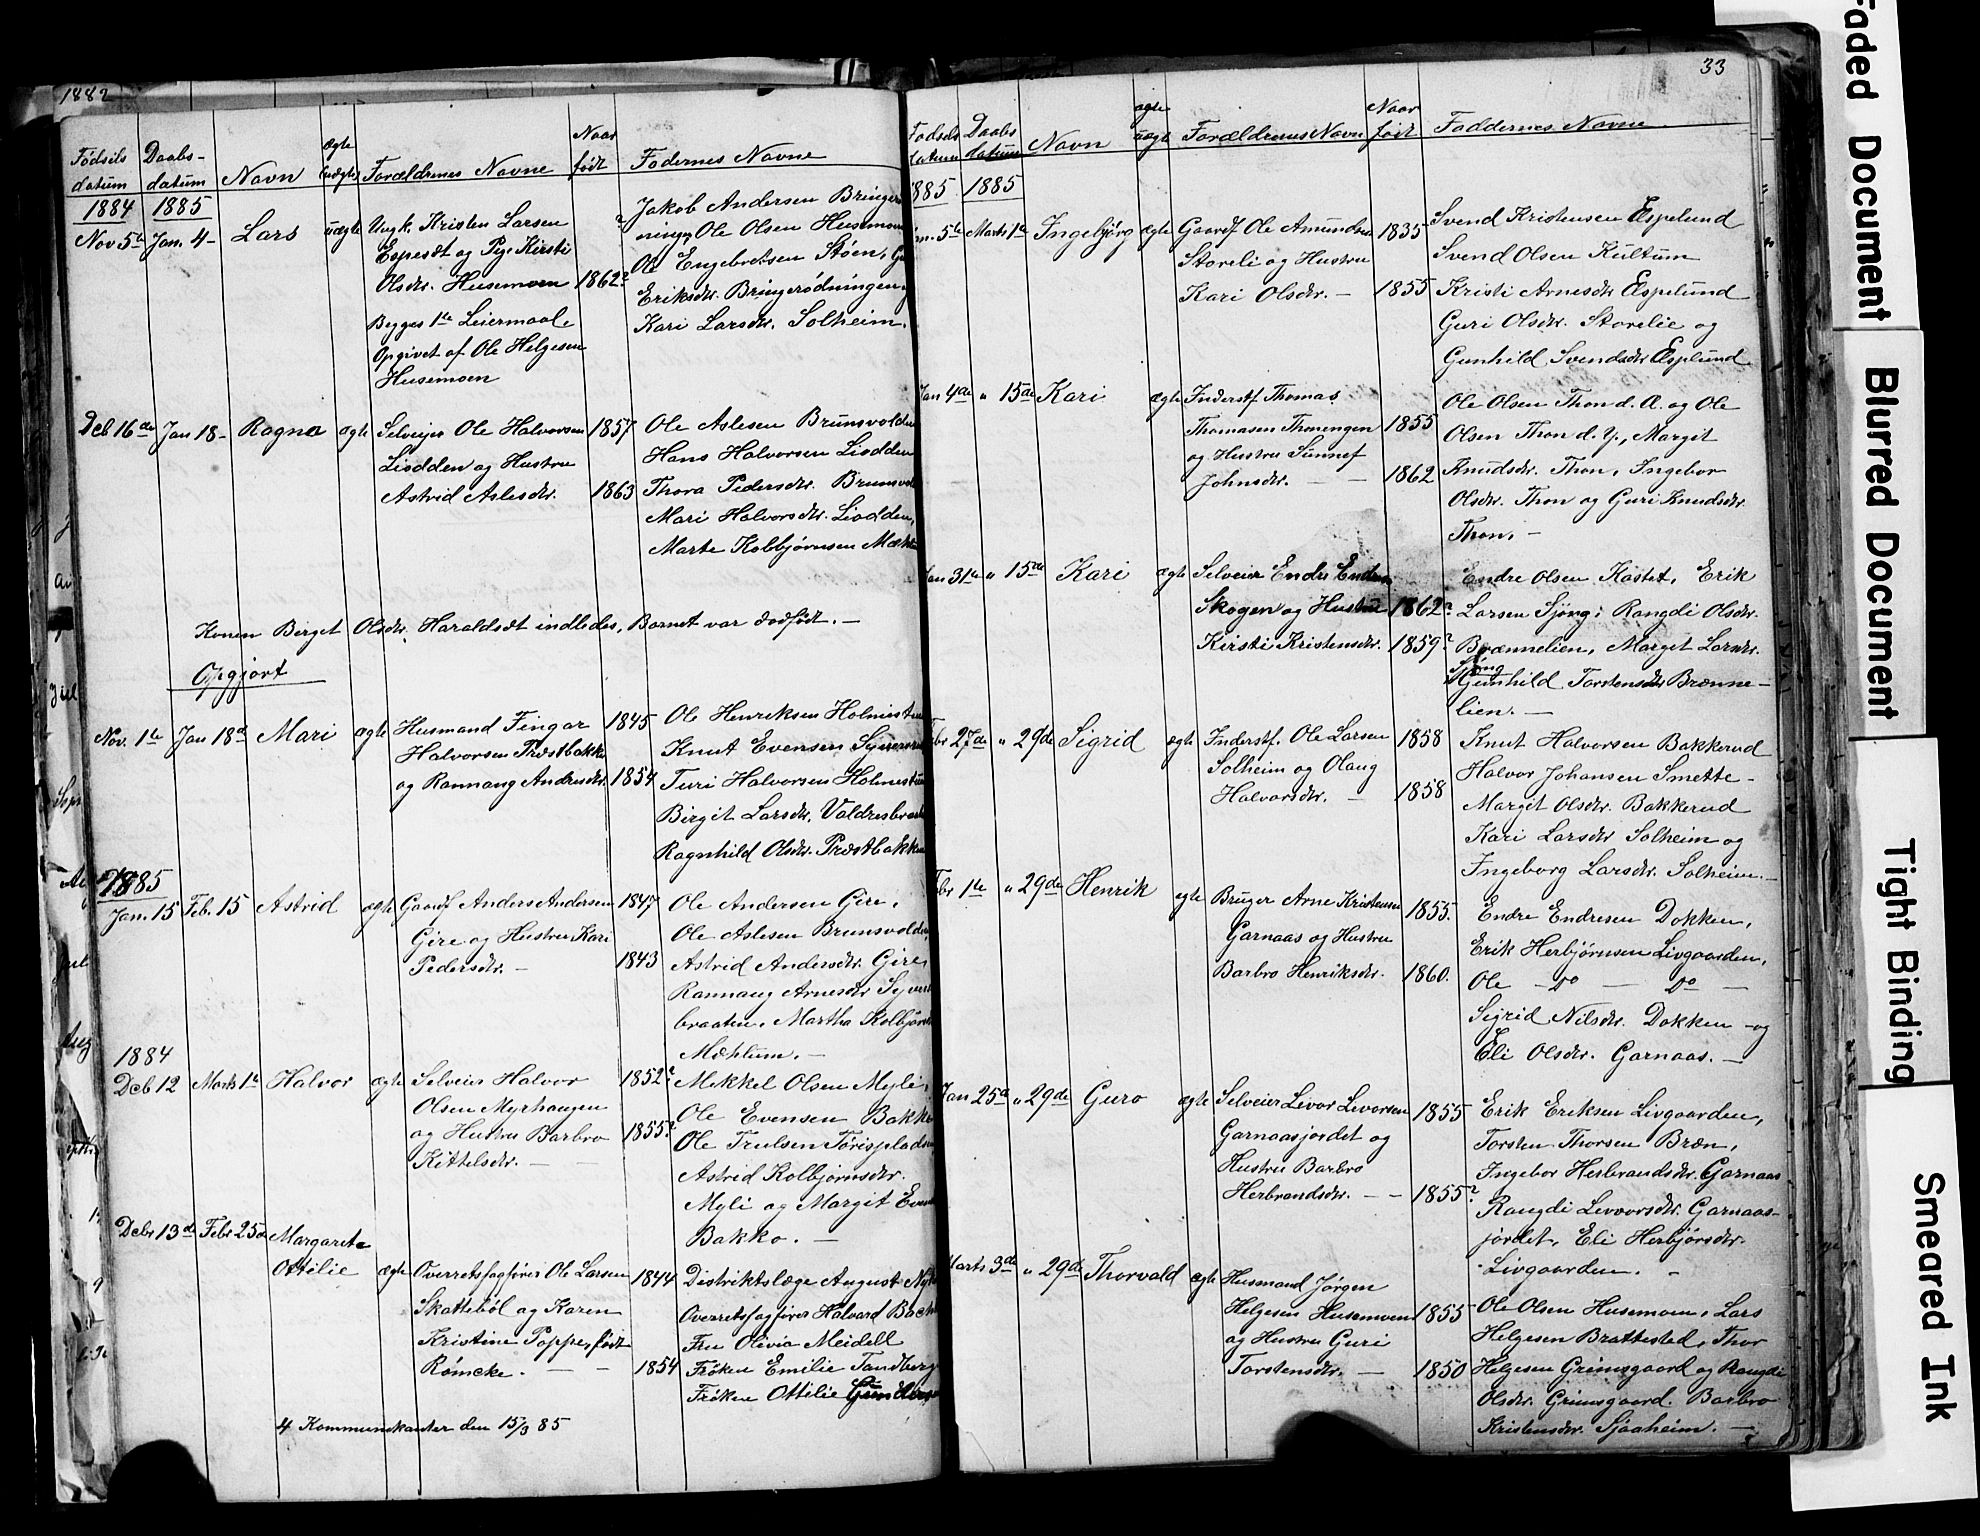 1882
Fødsels datum
Daabs- datum
Navn
Ægte uægte
Forældrenes Navne
Naar født
Fadernes Navne
1884 1885
Nov 5te Jan. 4 - Lars uægte Ungk. Kristen Larsen
Espesæt og Pige Kirsti
Olsdr. Husemoen 1862?
Begges 1te Leiermaal.
Opgivet af Ole Helgesen
Husemoen
Jakob Andersen
Ole Olsen Husemoen
Ole Engebretsen Støen,
Eriksdr. Bringerødningen,
Kari Larsdr. Solheim.
Deb 16de Jan 18 - Ragna ægte Selveier Ole Halvorsen 1857
Liodden og Hustru
Astrid Aslesdr. 1863
Ole Aslesen Brunsvolden
Hans Halvorsen Liodden
Thora Pedersdr.
Mari Halvorsdr. Liodden,
Marte Kolbjørnsen
Konen Birget Olsdr. Haraldsæt indledes, Barnet var dødfødt. -
Opgjort
Nov. 1te Jan 18de Mari ægte Husmand Fingar 1845
Halvorsen Præstbakke
og Rannang Andersdr. 1854
Ole Henriksen
Knut Evensen
Turi Halvorsen
Birgit Larsdr.
Ragnhild Olsdr.
1885
Jan. 15 Feb. 15 Astrid ægte Gaardf Anders Andersen 1847
Gire og Hustru Kari
Pedersdr. - 1843
Ole Andersen Gire,
Ole Aslesen Brunsvolden,
Astrid Andersdr. Gire,
Rannaug Arnesdr
braaten, Martha
Mæhlum. -
1884
Deb 12 Marts 1te Halvor ægte Selveier Halvor 1852?
Olsen Myrhaugen
og Hustru Barbro 1855?
Kittelsdr. - -
Mekkel Olsen Myli,
Ole Evensen Bakko
Ole Trulsen
Astrid Kolbjørnsdr.
Myli og Margit
Bakko. -
Debr 13de Febr 25de Margarete
Ottilie ægte Overretssagfører Ole Larsen 1844
Skattebøl og Karen
Kristine Poppe, født
Rømcke. - - 1854
Distriktslæge August
Overretssagfører Halvard
Fru Olivia Meidell
Frøken Emilie Tandberg
Frøken Ottilie
4 Kommunikanter den 15/3 85
33
Fødsels datum
Daabs datum
Navn
ægte uægte
Forældrenes Navn
Naar født
Faddernes Navne
1885 1885
5te Marts 1te Ingebjørg ægte Gaardf Ole Amundsen 1835
Storeli og Hustru
Kari Olsdr. - 1855
Svend Kristensen Espelund
Svend Olsen Kultum
Kristi Arnesdr Espelund
Guri Olsdr. Storelie og
Gunhild Svendsdr Espelund
Jan 4de " 15de Kari ægte Inderstf Thomas
Thomasen Thoningen 1855
og Hustru Sunnef
Johnsdr. - - 1862
Ole Olsen Thon d. Æ. og Ole
Olsen Thon d. Y., Margit
Knudsdr. Thon, Ingebor
Olsdr. Thon og Guri Knudsdr.
Thon. -
Jan 31te " 15de Kari ægte Selveier Endre
Skogen og Hustru 1862?
Kirsti Kristensdr. 1859?
Endre Olsen Kastet, Erik
Larsen Sjong; Rangdi Olsdr.
Brænnelien, Marget Larsdr.
Sjong
Gunhild Torstensdr Brænne-
lien. -
Febr 27de " 29de Sigrid ægte Inderstf. Ole Larsen 1858
Solheim og Olaug
Halvorsdr. - 1858
Knut Halvorsen Bakkerud
Halvor Johansen Smette -
Margit Olsdr. Bakkerud
Kari Larsdr Solheim og
Ingeborg Larsdr. Solheim. -
Febr 1te " 29de Henrik ægte Bruger Arne Kristensen 1855.
Garnaas og Hustru
Barbro Henriksdr. 1860.
Endre Endresen Dokken,
Erik Herbjørnsen Livgaarden,
Ole - Do - Do -
Sigrid Nilsdr. Dokken - og
Eli Olsdr. Garnaas. -
Jan 25de " 29de Guro ægte Selveier Livor Levorsen 1855
Garnaasjordet og
Hustru Barbro
Herbrandsdr. - - 1855?
Erik Eriksen Livgaarden,
Torsten Thorsen Bræn,
Ingebor Herbrandsdr. Garnaas
Rangdi Livvorsdr. Garnaas-
jordet, Eli Herbjørsdr.
Livgaarden. -
Marts 3de " 29de Thorvald ægte Husmand Jørgen
Helgesen Husemoen 1855
og Hustru Guri
Torstensdr. - 1850
Ole Olsen Husemoen, Lars
Helgesen Brattested, Thor
Helgesen Grimsgaard og Rangdi
Olsdr. Grimsgaard. Barbro
Kristensdr. Sjaaheim. -
Faded Document
Blurred Document
Tight Binding
Smeared Ink